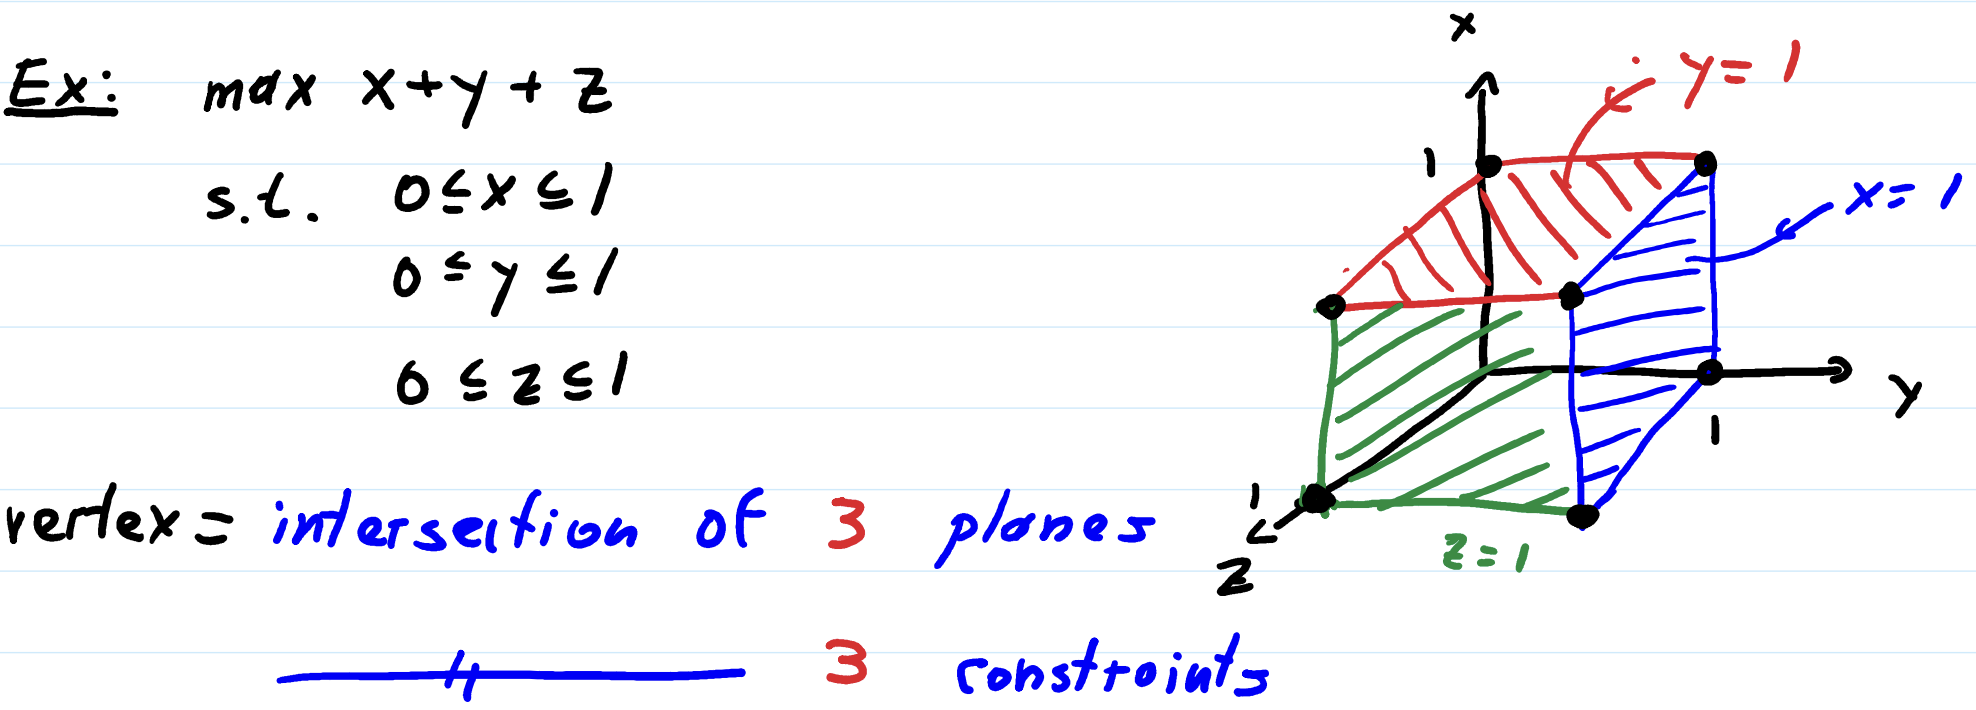 Ex: max x+y+z
s.t. 0≤x≤1
0≤y≤1
0≤z≤1
vertex = intersection of 3 planes
—〃— 3 constraints
x
y=1
1
x=1
y
1
1
z
z=1